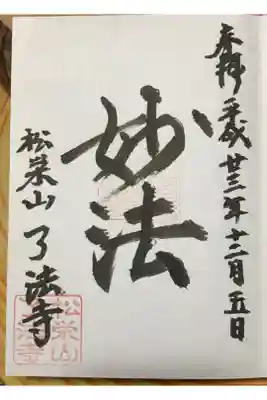 奉拝 平成廿三年十二月五日
妙法
松栄山 了法寺
松栄山
了法寺